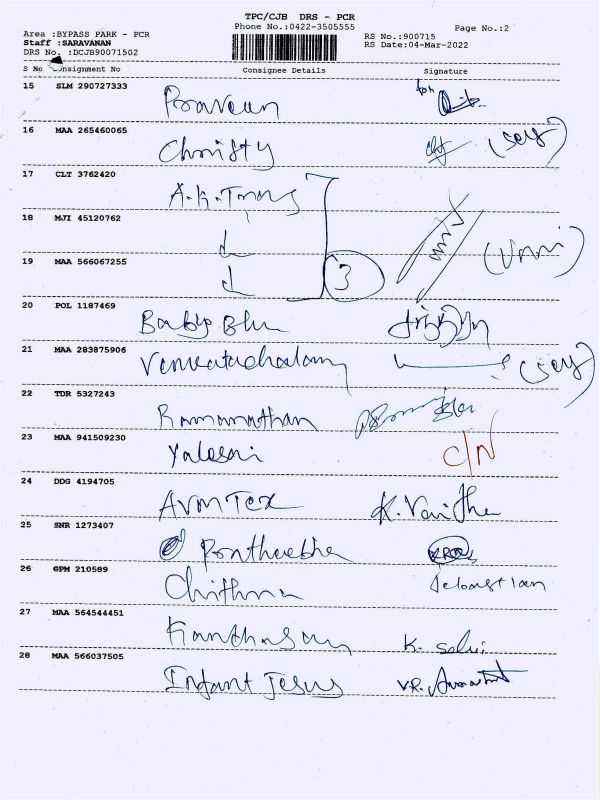 TPC/CJB DRS - PCR
Area :BYPASS PARK - PCR Phone No.:0422-3505555 Page No.:2
Staff :SARAVANAN RS No.:900715
DRS No. :DCJB90071502 RS Date:04-Mar-2022
S No Consignment No Consignee Details Signature
15 SLM 290727333 Praveen
16 MAA 265460065 Christy (self)
17 CLT 3762420 A.K.
18 MJI 45120762 (Unni)
19 MAA 566067255 3
20 POL 1187469 Baby Blu
21 MAA 283875906 Venkatachalam (self)
22 TDR 5327243 Ramanathan
23 MAA 941509230 C/N
24 DDG 4194705 Arm Tex K. Vanitha
25 SNR 1273407
26 GPM 210589 Chithra Sebastian
27 MAA 564544451 Kanthasamy K. Selvi
28 MAA 566037505 Infant Jesus V.R.